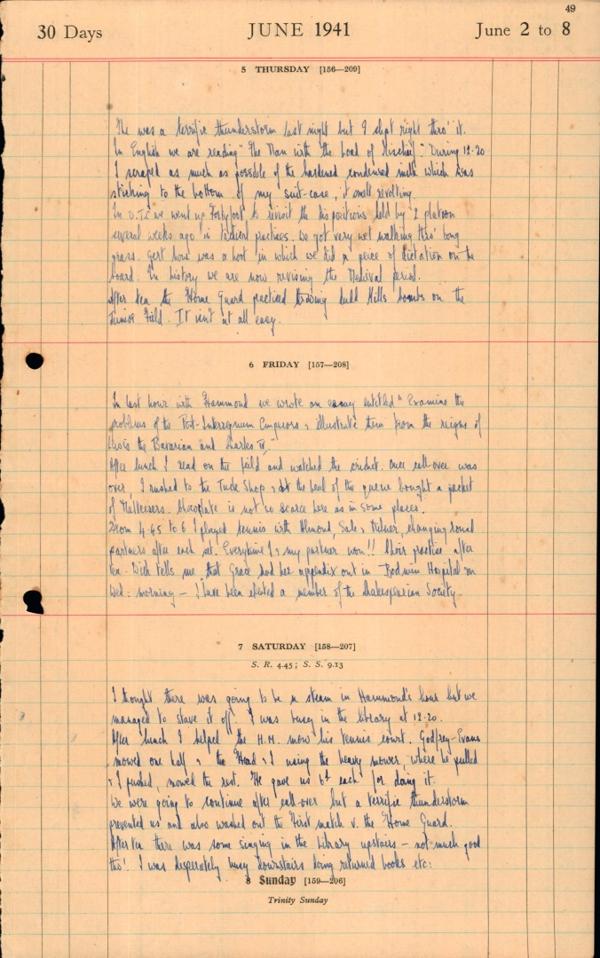 49
30 Days JUNE 1941 June 2 to 8
5 THURSDAY [156—209]
The was a terrific thunderstorm last night but I slept right thro' it.
In English we are reading "The Man with the load of Mischief". During 12.20
I scraped as much as possible of the hardened condensed milk which was
sticking to the bottom of my suit-case, it smelt revolting.
In O.T.C we went up to revisit the dispositions held by 2 platoon
several weeks ago in tactical practices. We got very wet walking thro' long
grass. Gert hour was a hoot in which we did a piece of dictation on the
board. In history we are now revising the Medival period.
After tea the Home Guard practised throwing dull Mills bombs on the
Junior Field. It isn't at all easy.
6 FRIDAY [157—208]
In last hour with Hammond we wrote an essay entitled "Examine the
problems of the Post-Interregnum Emperors & illustrate them from the reigns of
Louis the Bavarian and Charles IV."
After lunch I read on the field and watched the cricket. Once call-over was
over, I rushed to the Tuck Shop & at the head of the queue bought a packet
of Maltesers. Chocolate is not so scarce here as in some places.
From 4.45 to 6 I played tennis with Almond, Sale & Milner, changing round
partners after each set. Everytime I & my partner won!! Choir practice after
tea. Dick tells me that Grace had her appendix out in Bodmin Hospital on
Wed: morning — I have been elected a member of the Shakesperian Society.
7 SATURDAY [158—207]
S. R. 4.45; S. S. 9.13
I thought there was going to be a steam in Hammond's hour but we
managed to stave it off. I was busy in the library at 12.20.
After lunch I helped the H.M. mow his tennis court. Godfrey-Evans
mowed one half & the Head & I using the heavy mower, where he pulled
& I pushed, mowed the rest. He gave us 6d each for doing it.
We were going to continue after call-over but a terrific thunderstorm
prevented us and also washed out the First match v. the Home Guard.
After tea there was some singing in the Library upstairs — not much good
tho'. I was desperately busy downstairs doing returned books etc:
8 Sunday [159—206]
Trinity Sunday